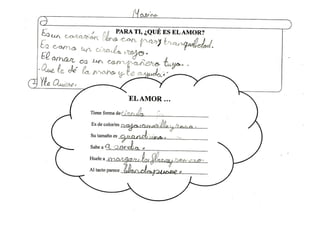 Marina
PARA TI, ¿QUÉ ES EL AMOR?
Es un corazón libre con paz y tranquilidad.
Es como un círculo rojo.
El amor es un compañero tuyo.
Que te dé la mano y te ayuda.
Y te quiere.
EL AMOR ...
Tiene forma de círculo
Es de color/es rojo, amarillo y rosa
Su tamaño es grande
Sabe a
Huele a margarita
Al tacto parece blando y suave.